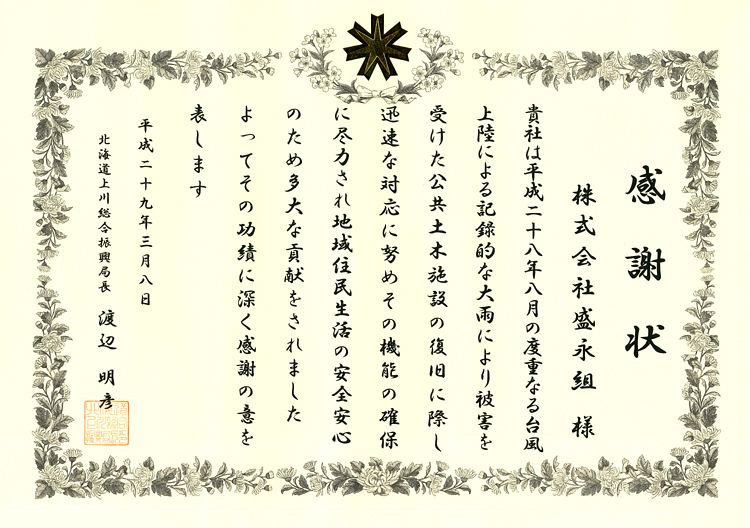 感謝状
株式会社盛永組 様
貴社は平成二十八年八月の度重なる台風
上陸による記録的な大雨により被害を
受けた公共土木施設の復旧に際し
迅速な対応に努めその機能の確保
に尽力され地域住民生活の安全安心
のため多大な貢献をされました
よってその功績に深く感謝の意を
表します
平成二十九年三月八日
北海道上川総合振興局長 渡辺 明彦